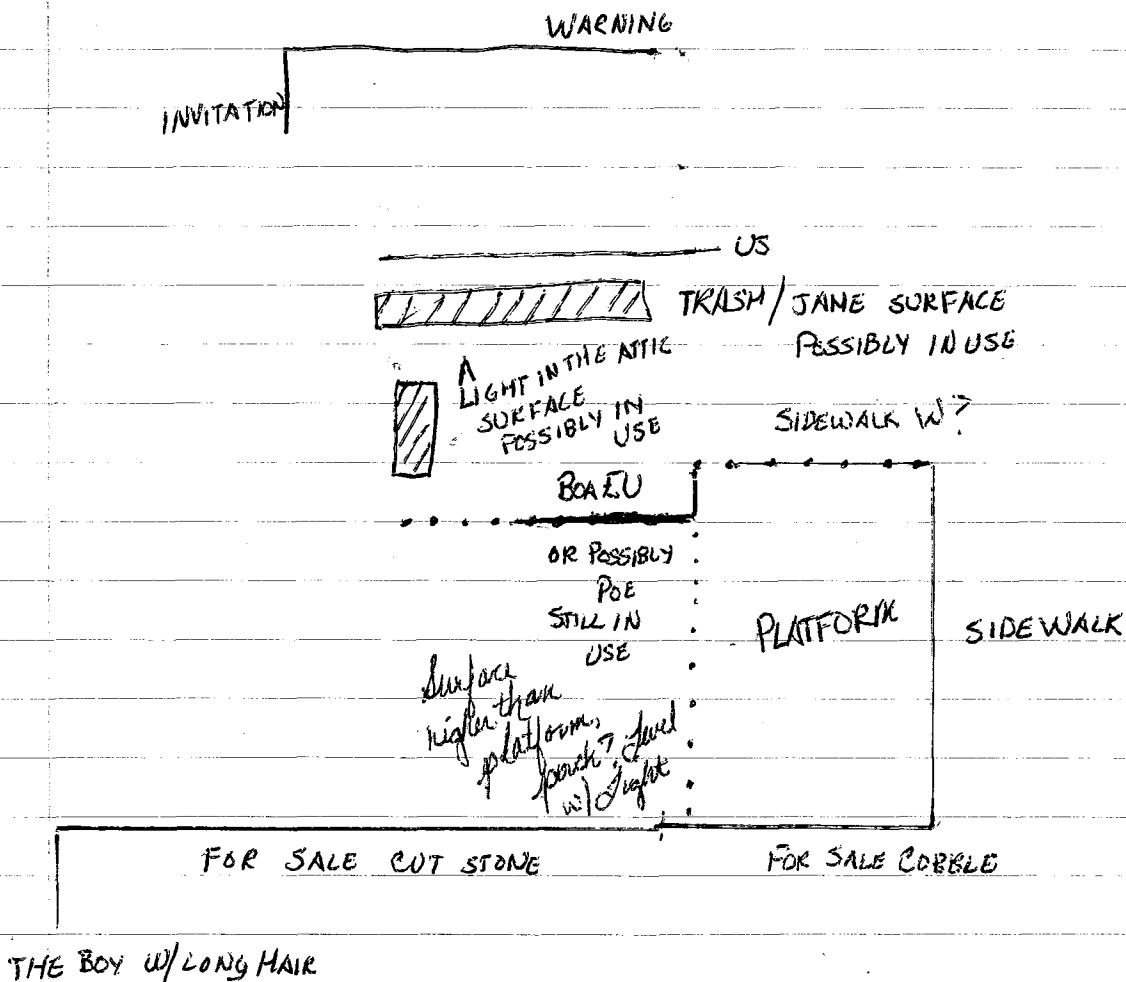 WARNING
INVITATION
US
TRASH/JANE SURFACE
POSSIBLY IN USE
A
LIGHT IN THE ATTIC
SURFACE
POSSIBLY IN
USE
SIDEWALK W?
BOA
OR POSSIBLY
POE
STILL IN
USE
PLATFORM
SIDEWALK
Surface
higher than
platform,
porch? Level
w/ Light
FOR SALE CUT STONE
FOR SALE COBBLE
THE BOY W/ LONG HAIR